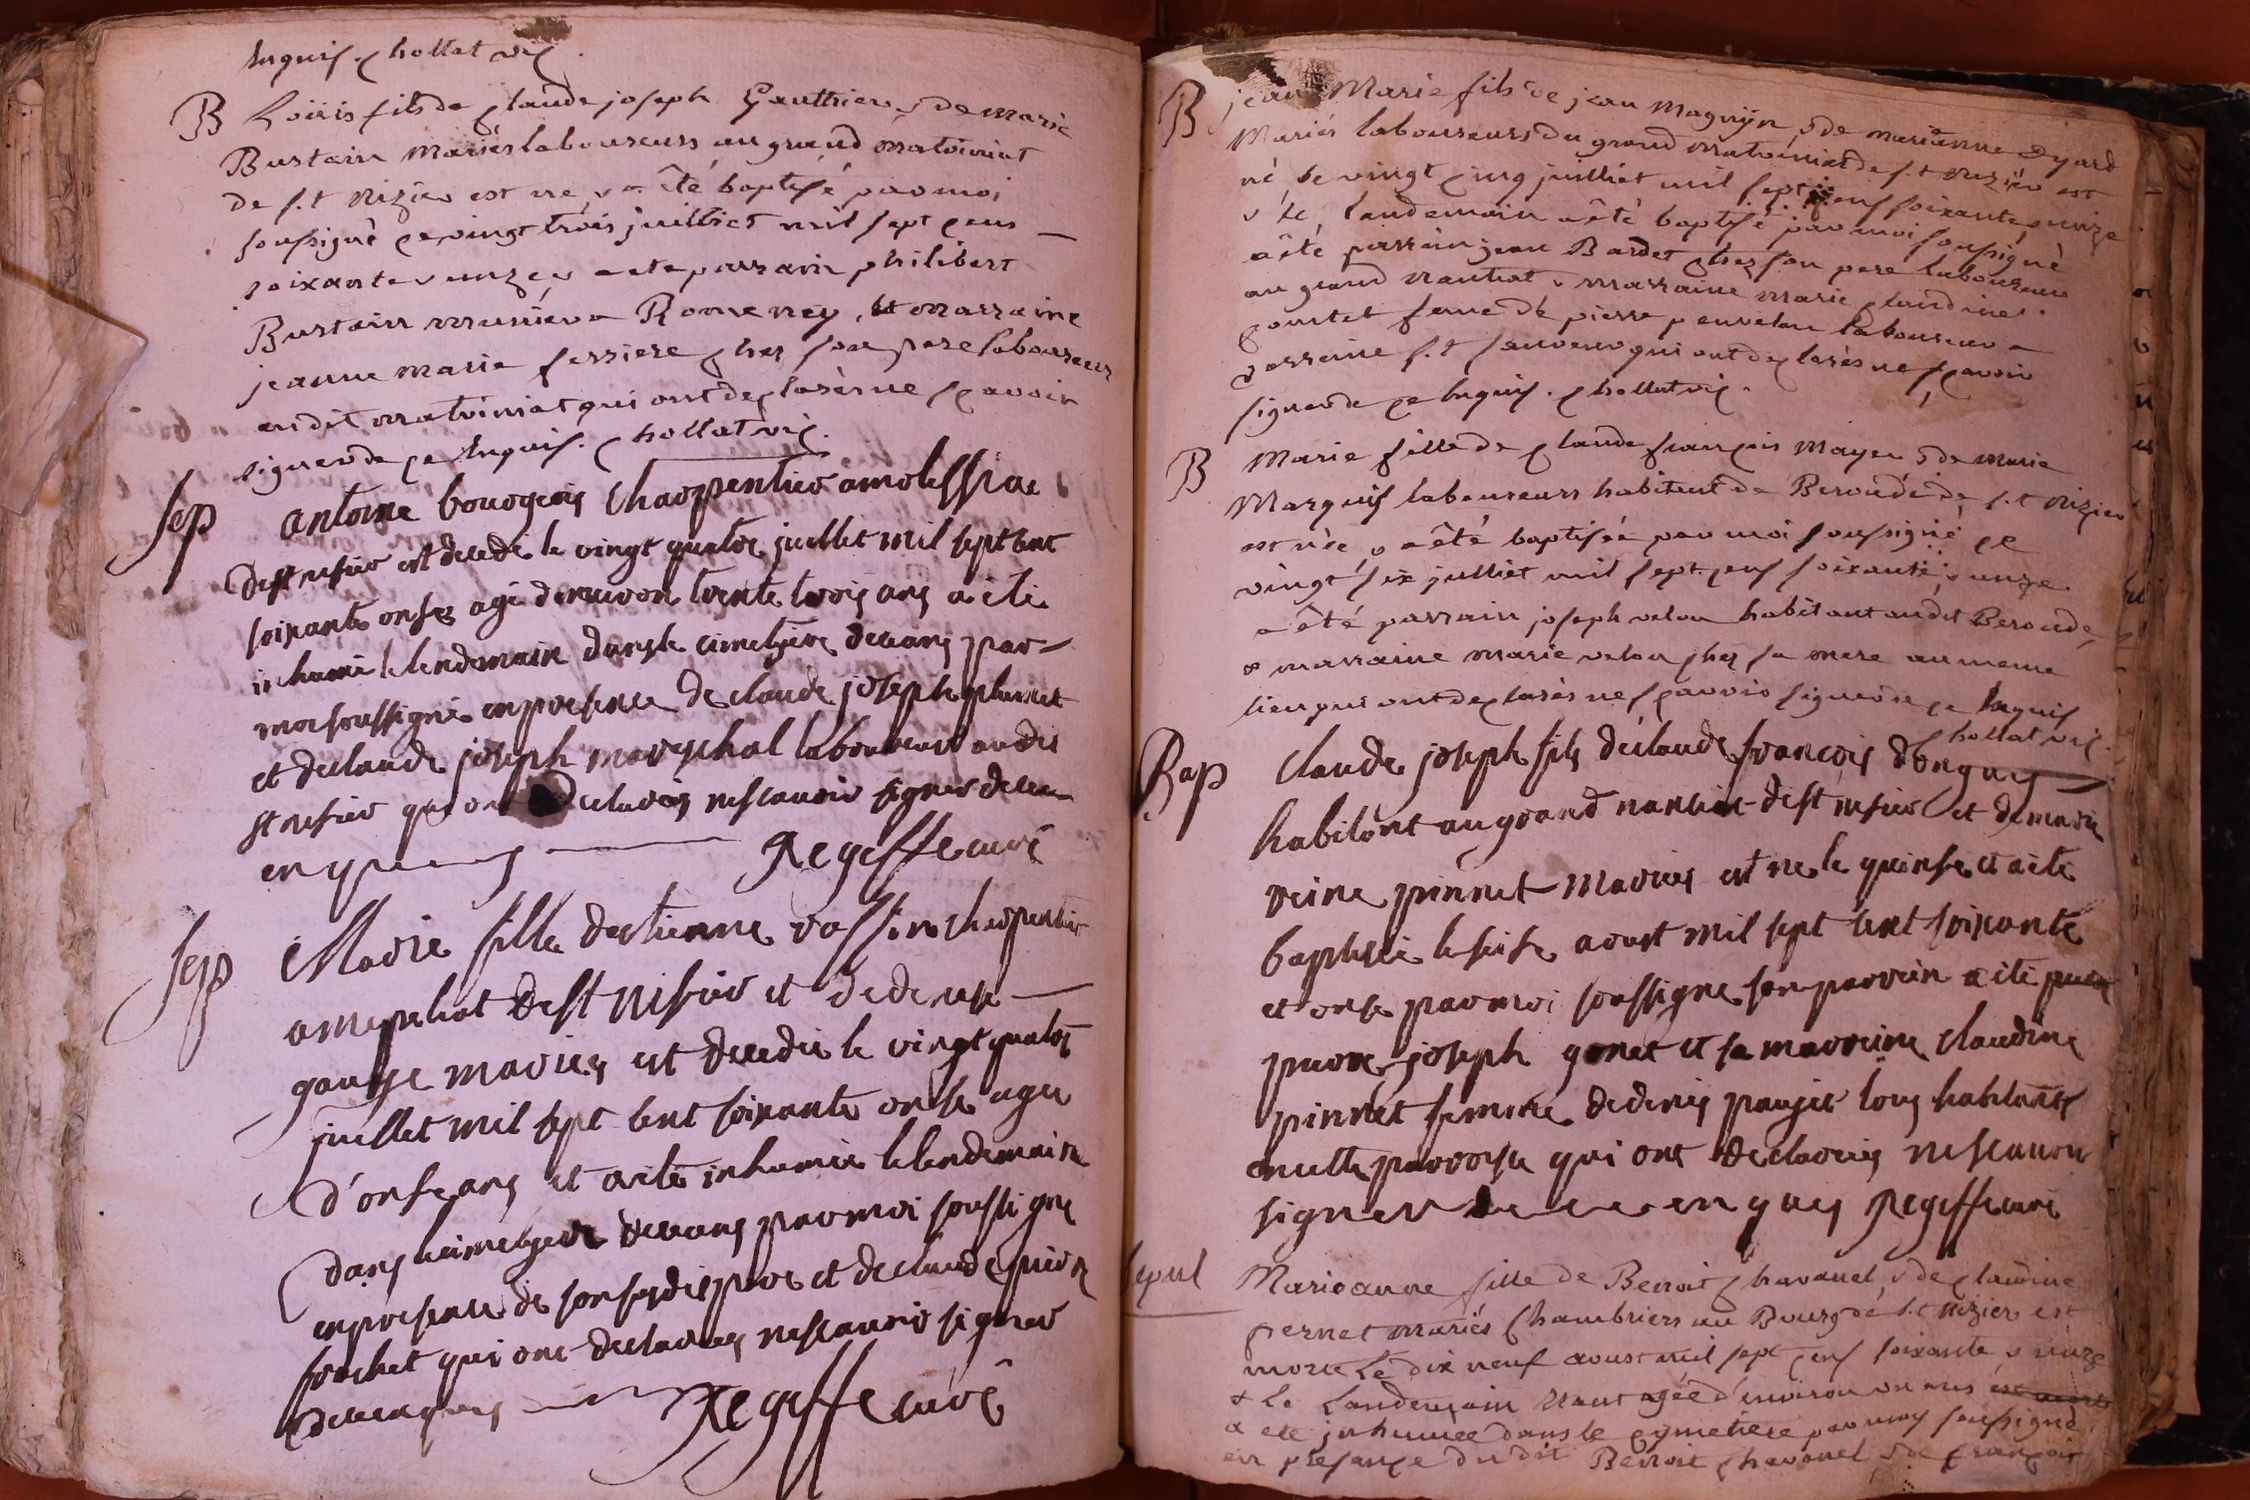 Enquis. Chollat vic.
B Loüis fils de Claude joseph Gauthier & de marie
Bustain mariés laboureurs au grand
de s.t Nizier est né & a été baptisé par moi
soussigné ce vingt trois juilliet mil sept cens
soixante & unze & a été parrain philibert
Bustain a Romeney, et marraine
jeanne marie ferriere chez son pere laboureur
audit qui ont declarès ne sçavoir
signer de ce Enquis. Chollat vic.
Sep antoine bourgeois Charpentier a molessiae
de st nisier est decede le vingt quatre juillet mil sept cent
soixante onse age denviron trente trois ans a ete
inhumé le lendemain dans le cimetiere de ceans par
moi soussigné en presence de claude joseph plumet
et de claude joseph mareschal laboureurs audit
st nisier qui ont declarés ne scauoir signer de ce
enquis Regeffe curé
Sep Marie fille destienne vossin charpentier
a de st nisier et de denise
gauge mariés est decedée le vingt quatre
juillet mil sept cent soixante onse agee
d'onse ans et a ete inhumée le lendemain
dans le cimetiere de ceans par moi soussigné
en presence de son susdit pere et de claude pierre
frochet qui ont declarés ne scauoir signer
de ce enquis Regeffe curé
B jean Marie fils de jean Magnyn & de marianne Dyard
Mariés laboureurs du grand de s.t Nizier est
né le vingt cinq juilliet mil sept cens soixante & unze
& le landemain a été baptisé par moi soussigné
a été parrain jean Bardet chez son pere laboureur
au grand & marraine marie claudine
Contet feme de pierre laboureur a
s.t qui ont declarès ne sçavoir
signer de ce Enquis. Chollat vic.
B Marie fille de Claude françois Mayer & de marie
Marquis laboureurs habitent de Beroude de s.t Nizier
est née & a été baptisée par moi soussigné ce
vingt six julliet mil sept cens soixante & unze
a été parrain joseph velon habitant audit Beroude,
& marraine marie velon chez sa mere au meme
lieu qui ont declarès ne sçavoir signer de ce Enquis
Chollat vic.
Bap claude joseph fils de claude francois donguy
habitant au grand nantiat de st nisier et de marie
reine pinnet mariés est ne le quinse et a ete
baptisé le seise aoust mil sept cent soixante
et onse par moi soussigné son parrain a ete
pierre joseph gonet et sa marreine claudine
pinnet femme de denis pauget tous habitants
en cette parroisse qui ont declarés ne scauoir
signer de ce enquis Regeffe curé
sepul Marie anne fille de Benoit Chavanel & de Claudine
Pernet mariés Chambriers au Bourg de s.t Nizier est
morte Le dix neuf aoust mil sept cens soixante & unze
& le Landemain etant agée d'environ un ans est morte
a ete inhumée dans le cymetiere par moy soussigné
en presançe dudit Benoit Chavanel & de françois